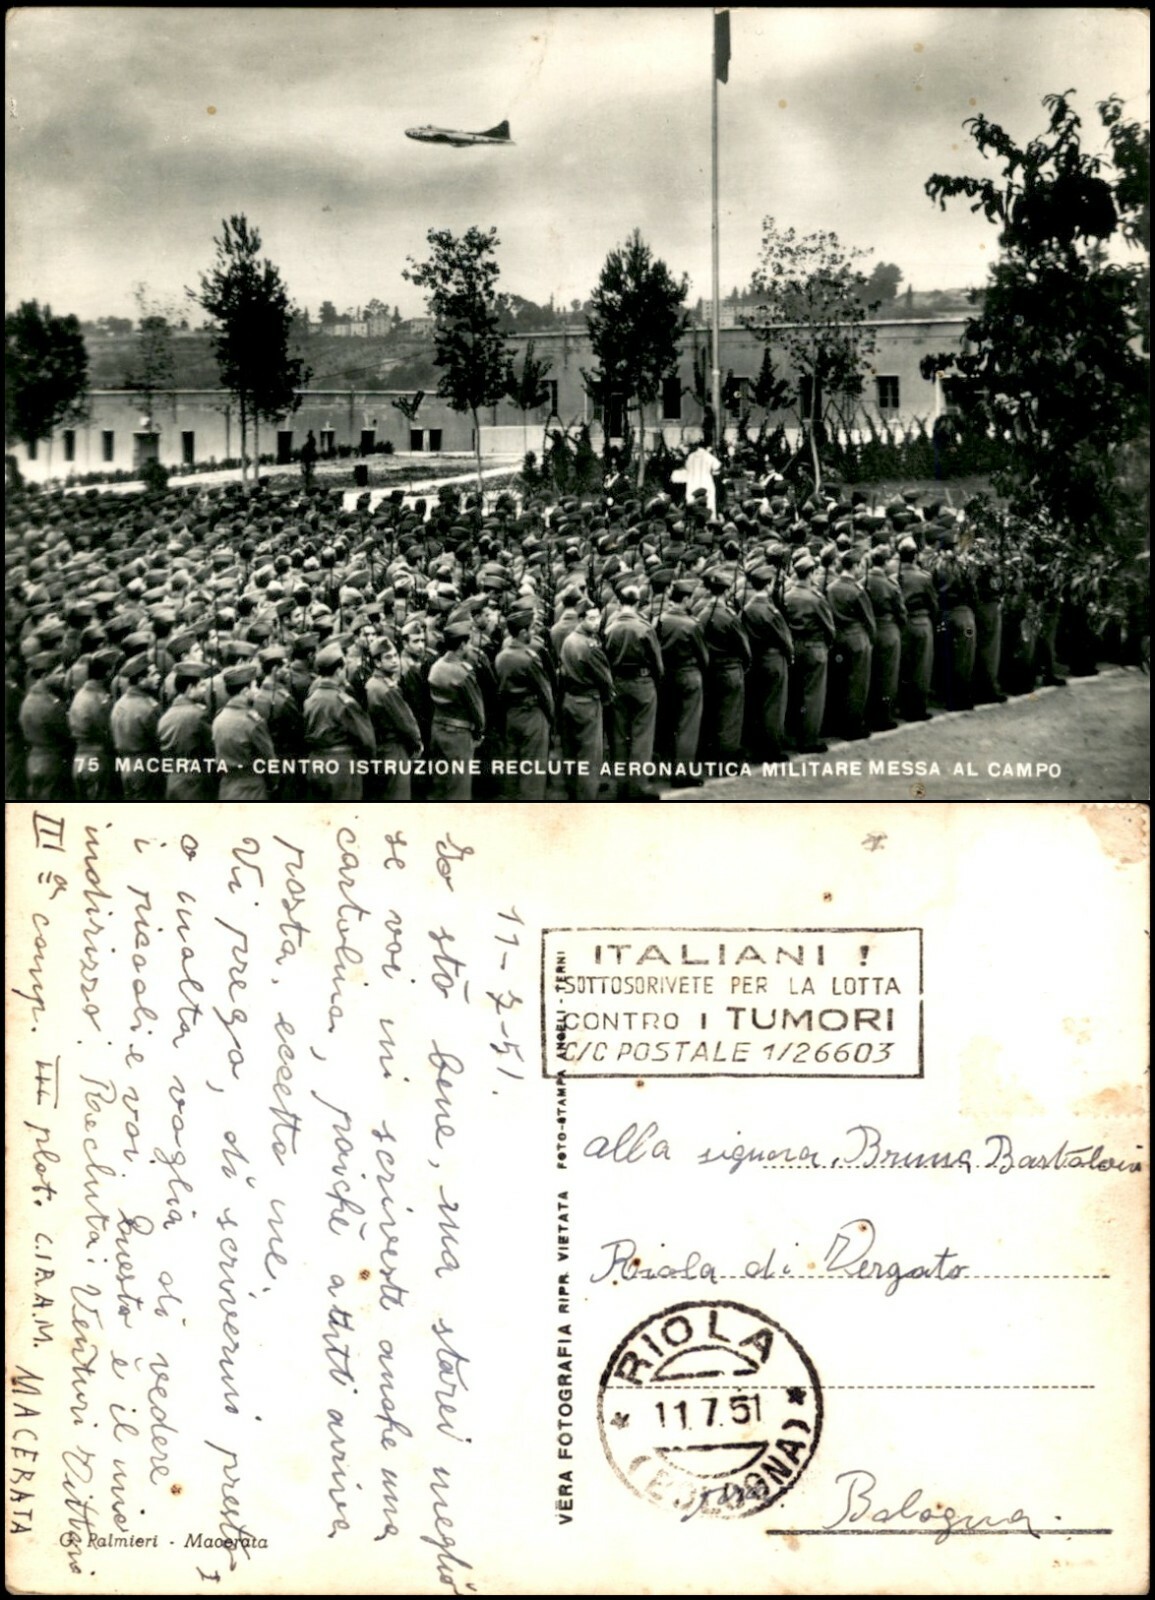 75 MACERATA - CENTRO ISTRUZIONE RECLUTE AERONAUTICA MILITARE MESSA AL CAMPO
11-7-51.
Io stò bene, ma starei meglio
se voi mi scriveste anche una
cartolina, poichè a tutti arriva
posta, eccetto me.
Vi prego, di scrivermi presto
o molta voglia di vedere I
i piccoli e voi. Questo è il mio
indirizzo. Recluta: Venturi Vittorio
IIIª comp. III plot. C.I.A.A.M. MACERATA
G. Palmieri - Macerata
VERA FOTOGRAFIA RIPR. VIETATA FOTO-STAMPA ANGELI - TERNI
ITALIANI !
SOTTOSORIVETE PER LA LOTTA
CONTRO I TUMORI
C/C POSTALE 1/26603
alla signora Bruna
Riola di Vergato
RIOLA
11.7.51
(BOLOGNA)
Bologna.